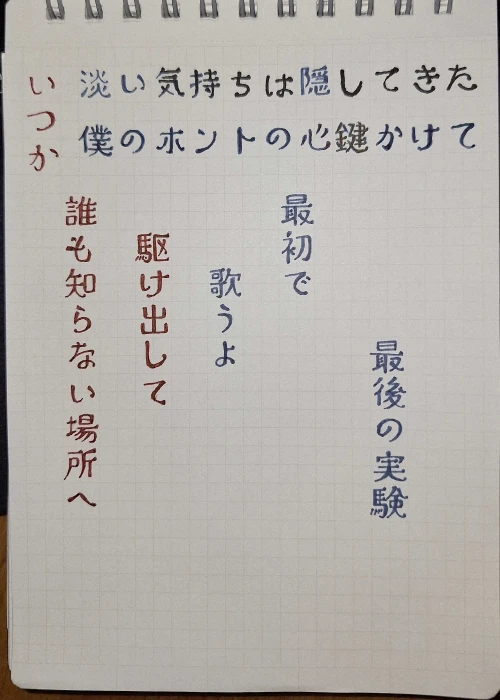 淡い気持ちは隠してきた
僕のホントの心鍵かけて
最後の実験
最初で
歌うよ
駆け出して
誰も知らない場所へ
いつか